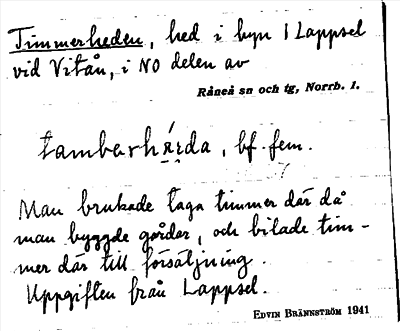 Timmerheden, hed i byn Lappsel
vid Vitån, i NO delen av
Råneå sn och tg, Norrb. l.
tambarhä́ɪda, bf. fem.
Man brukade taga timmer där då
man byggde gårdar, och bilade tim-
mer där till försäljning.
Uppgiften från Lappsel.
EDVIN BRÄNNSTRÖM 1941